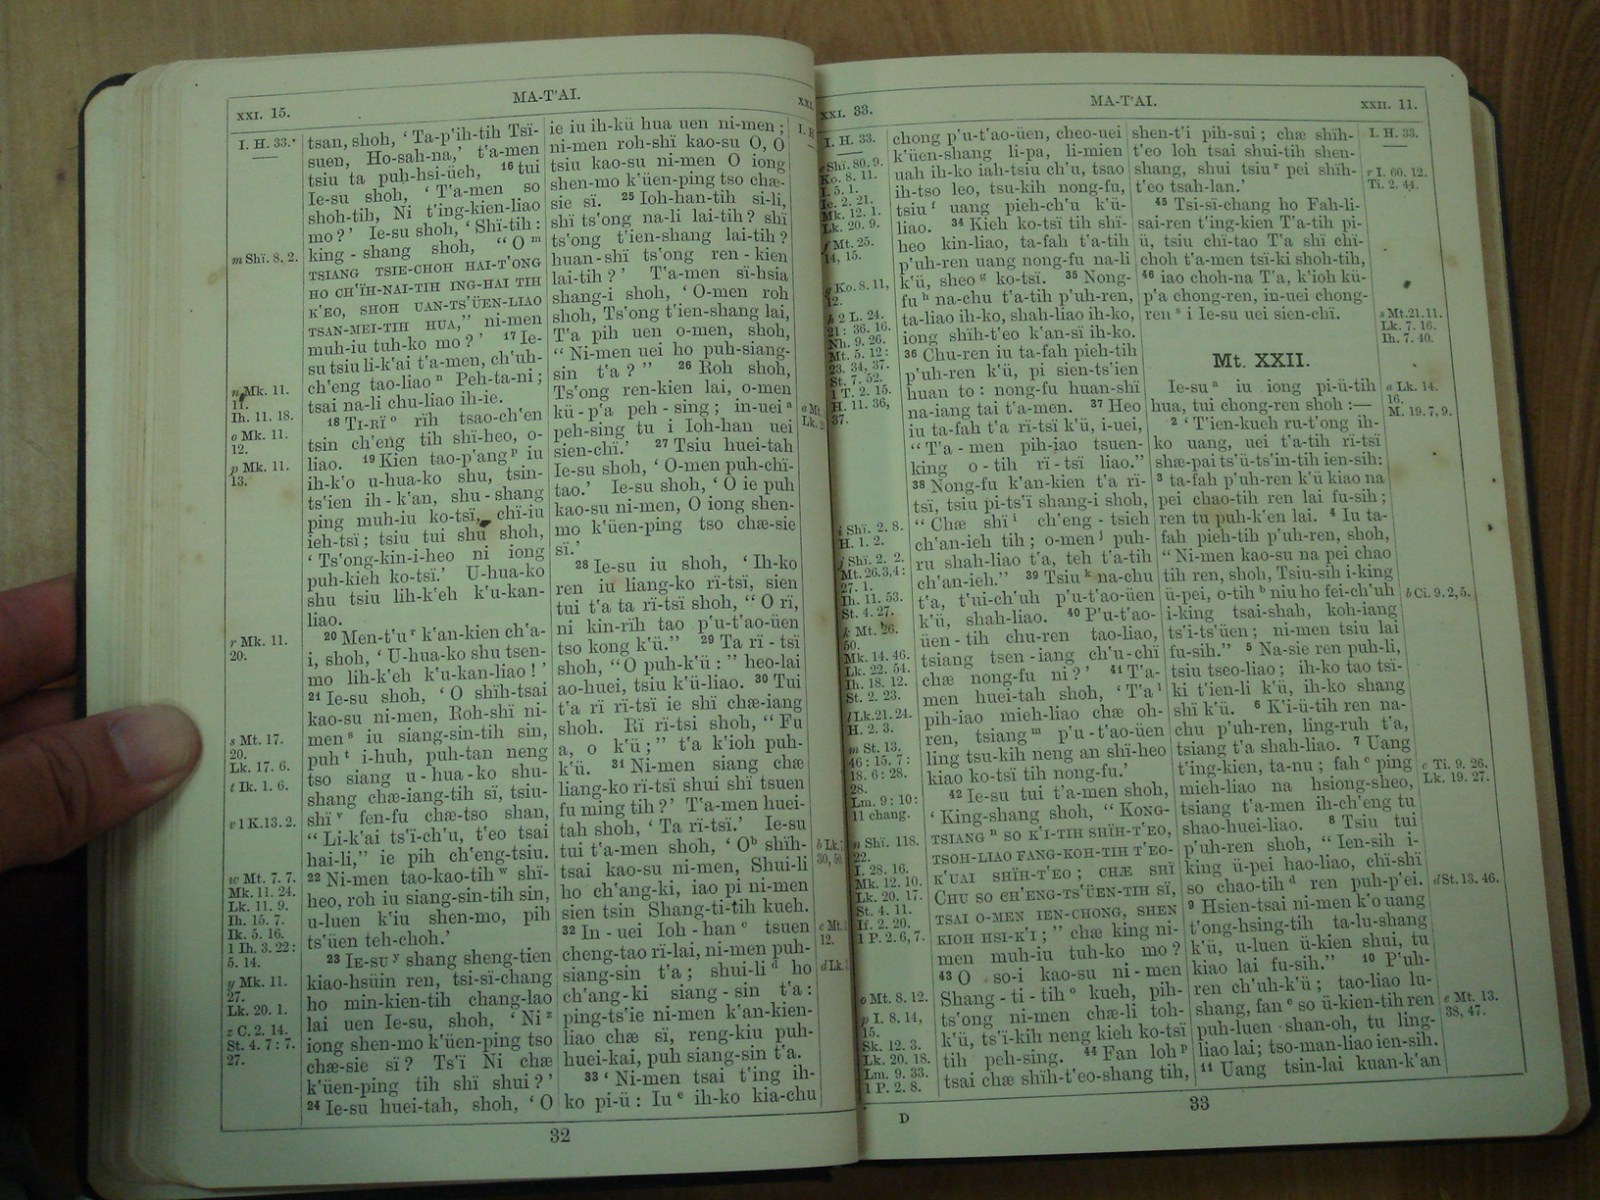 XXI. 15.
MA-T'AI.
I. H. 33.
m Shï. 8. 2.
n Mk. 11.
11.
Ih. 11. 18.
o Mk. 11.
12.
p Mk. 11.
13.
r Mk. 11.
20.
s Mt. 17.
20.
Lk. 17. 6.
t Ik. 1. 6.
v 1 K. 13. 2.
w Mt. 7. 7.
Mk. 11. 24.
Lk. 11. 9.
Ih. 15. 7.
Ik. 5. 16.
1 Ih. 3. 22:
5. 14.
y Mk. 11.
27.
Lk. 20. 1.
z C. 2. 14.
St. 4. 7: 7.
27.
tsan, shoh, ‘ Ta-p'ih-tih Tsï-
suen, Ho-sah-na,’ t'a-men
tsiu ta puh-hsi-üeh, 16 tui
Ie-su shoh, ‘ T'a-men so
shoh-tih, Ni t'ing-kien-liao
mo?’ Ie-su shoh, ‘ Shï-tih:
king-shang shoh, “ O m
TSIANG TSIE-CHOH HAI-T'ONG
HO CH'ÏH-NAI-TIH ING-HAI TIH
K'EO, SHOH UAN-TS'ÜEN-LIAO
TSAN-MEI-TIH HUA,” ni-men
muh-iu tuh-ko mo?’ 17 Ie-
su tsiu li-k'ai t'a-men, ch'uh-
ch'eng tao-liao n Peh-ta-ni;
tsai na-li chu-liao ih-ie.
18 TI-RÏ o rïh tsao-ch'en
tsin ch'eng tih shï-heo, o-
liao. 19 Kien tao-p'ang p iu
ih-k'o u-hua-ko shu, tsin-
ts'ien ih-k'an, shu-shang
ping muh-iu ko-tsï, chï-iu
ieh-tsï; tsiu tui shu shoh,
‘ Ts'ong-kin-i-heo ni iong
puh-kieh ko-tsï.’ U-hua-ko
shu tsiu lih-k'eh k'u-kan-
liao.
20 Men-t'u r k'an-kien ch'a-
i, shoh, ‘ U-hua-ko shu tsen-
mo lih-k'eh k'u-kan-liao!’
21 Ie-su shoh, ‘ O shïh-tsai
kao-su ni-men, Roh-shï ni-
men s iu siang-sin-tih sin,
puh t i-huh, puh-tan neng
tso siang u-hua-ko shu-
shang chæ-iang-tih sï, tsiu-
shï v fen-fu chæ-tso shan,
“ Li-k'ai ts'ï-ch'u, t'eo tsai
hai-li,” ie pih ch'eng-tsiu.
22 Ni-men tao-kao-tih w shï-
heo, roh iu siang-sin-tih sin,
u-luen k'iu shen-mo, pih
ts'üen teh-choh.’
23 IE-SU y shang sheng-tien
kiao-hsüin ren, tsi-sï-chang
ho min-kien-tih chang-lao
lai uen Ie-su, shoh, ‘ Ni z
iong shen-mo k'üen-ping tso
chæ-sie sï? Ts'ï Ni chæ
k'üen-ping tih shï shui?’
24 Ie-su huei-tah, shoh, ‘ O
ie iu ih-kü hua uen ni-men;
ni-men roh-shï kao-su O, O
tsiu kao-su ni-men O iong
shen-mo k'üen-ping tso chæ-
sie sï. 25 Ioh-han-tih si-li,
shï ts'ong na-li lai-tih? shï
ts'ong t'ien-shang lai-tih?
huan-shï ts'ong ren-kien
lai-tih?’ T'a-men sï-hsia
shang-i shoh, ‘ O-men roh
shoh, Ts'ong t'ien-shang lai,
T'a pih uen o-men, shoh,
“ Ni-men uei ho puh-siang-
sin t'a?” 26 Roh shoh,
Ts'ong ren-kien lai, o-men
kü-p'a peh-sing; in-uei a
peh-sing tu i Ioh-han uei
sien-chï.’ 27 Tsiu huei-tah
Ie-su shoh, ‘ O-men puh-chï-
tao.’ Ie-su shoh, ‘ O ie puh
kao-su ni-men, O iong shen-
mo k'üen-ping tso chæ-sie
sï.’
28 Ie-su iu shoh, ‘ Ih-ko
ren iu liang-ko rï-tsï, sien
tui t'a ta rï-tsï shoh, “ O rï,
ni kin-rïh tao p'u-t'ao-üen
tso kong k'ü.” 29 Ta rï-tsï
shoh, “O puh-k'ü:” heo-lai
ao-huei, tsiu k'ü-liao. 30 Tui
t'a rï rï-tsï ie shï chæ-iang
shoh. Rï rï-tsï shoh, “ Fu
a, o k'ü;” t'a k'ioh puh-
k'ü. 31 Ni-men siang chæ
liang-ko rï-tsï shui shï tsuen
fu ming tih?’ T'a-men huei-
tah shoh, ‘ Ta rï-tsï.’ Ie-su
tui t'a-men shoh, ‘ O b shïh-
tsai kao-su ni-men, Shui-li
ho ch'ang-ki, iao pi ni-men
sien tsin Shang-ti-tih kueh.
32 In-uei Ioh-han c tsuen
cheng-tao rï-lai, ni-men puh-
siang-sin t'a; shui-li d ho
ch'ang-ki siang-sin t'a:
ping-ts'ie ni-men k'an-kien-
liao chæ sï, reng-kiu puh-
huei-kai, puh siang-sin t'a.
33 ‘ Ni-men tsai t'ing ih-
ko pi-ü: Iu e ih-ko kia-chu
32
XXI. 33.
MA-T'AI.
XXII. 11.
I. H. 33.
e Shï. 80. 9.
Ko. 8. 11.
I. 5. 1.
Ie. 2. 21.
Mk. 12. 1.
Lk. 20. 9.
f Mt. 25.
14, 15.
g Ko. 8. 11,
12.
h 2 L. 24.
21: 36. 16.
Nh. 9. 26.
Mt. 5. 12:
23. 34, 37.
St. 7. 52.
1 T. 2. 15.
H. 11. 36,
37.
i Shï. 2. 8.
H. 1. 2.
j Shï. 2. 2.
Mt. 26. 3, 4:
27. 1.
Ih. 11. 53.
St. 4. 27.
k Mt. 26.
50.
Mk. 14. 46.
Lk. 22. 54.
Ih. 18. 12.
St. 2. 23.
l Lk. 21. 24.
H. 2. 3.
m St. 13.
46: 15. 7:
18. 6: 28.
28.
Lm. 9: 10:
11 chang.
n Shï. 118.
22.
I. 28. 16.
Mk. 12. 10.
Lk. 20. 17.
St. 4. 11.
If. 2. 20.
1 P. 2. 6, 7.
o Mt. 8. 12.
p I. 8. 14,
15.
Sk. 12. 3.
Lk. 20. 18.
Lm. 9. 33.
1 P. 2. 8.
chong p'u-t'ao-üen, cheo-uei
k'üen-shang li-pa, li-mien
uah ih-ko iah-tsiu ch'u, tsao
ih-tso leo, tsu-kih nong-fu,
tsiu f uang pieh-ch'u k'ü-
liao. 34 Kieh ko-tsï tih shï-
heo kin-liao, ta-fah t'a-tih
p'uh-ren uang nong-fu na-li
k'ü, sheo g ko-tsï. 35 Nong-
fu h na-chu t'a-tih p'uh-ren,
ta-liao ih-ko, shah-liao ih-ko,
iong shïh-t'eo k'an-sï ih-ko.
36 Chu-ren iu ta-fah pieh-tih
p'uh-ren k'ü, pi sien-ts'ien
huan to: nong-fu huan-shï
na-iang tai t'a-men. 37 Heo
iu ta-fah t'a rï-tsï k'ü, i-uei,
“ T'a-men pih-iao tsuen-
king o-tih rï-tsï liao.”
38 Nong-fu k'an-kien t'a rï-
tsï, tsiu pi-ts'ï shang-i shoh,
“ Chæ shï i ch'eng-tsieh
ch'an-ieh tih; o-men j puh-
ru shah-liao t'a, teh t'a-tih
ch'an-ieh.” 39 Tsiu k na-chu
t'a, t'ui-ch'uh p'u-t'ao-üen
k'ü, shah-liao. 40 P'u-t'ao-
üen-tih chu-ren tao-liao,
tsiang tsen-iang ch'u-chï
chæ nong-fu ni?’ 41 T'a-
men huei-tah shoh, ‘ T'a l
pih-iao mieh-liao chæ oh-
ren, tsiang m p'u-t'ao-üen
ling tsu-kih neng an shï-heo
kiao ko-tsï tih nong-fu.’
42 Ie-su tui t'a-men shoh,
‘ King-shang shoh, “ KONG-
TSIANG n SO K'I-TIH SHÏH-T'EO,
TSOH-LIAO FANG-KOH-TIH T'EO-
K'UAI SHÏH-T'EO; CHÆ SHÏ
CHU SO CH'ENG-TS'ÜEN-TIH SÏ,
TSAI O-MEN IEN-CHONG, SHEN
KIOH HSI-K'I;” chæ king ni-
men muh-iu tuh-ko mo?
43 O so-i kao-su ni-men
Shang-ti-tih o kueh, pih-
ts'ong ni-men chæ-li toh-
k'ü, ts'ï-kih neng kieh ko-tsï
tih peh-sing. 44 Fan loh p
tsai chæ shïh-t'eo-shang tih,
shen-t'i pih-sui; chæ shïh-
t'eo loh tsai shui-tih shen-
shang, shui tsiu r pei shïh-
t'eo tsah-lan.’
45 Tsi-sï-chang ho Fah-li-
sai-ren t'ing-kien T'a-tih pi-
ü, tsiu chï-tao T'a shï chï-
choh t'a-men tsï-ki shoh-tih,
46 iao choh-na T'a, k'ioh kü-
p'a chong-ren, in-uei chong-
ren s i Ie-su uei sien-chï.
Mt. XXII.
Ie-su a iu iong pi-ü-tih
hua, tui chong-ren shoh:—
2 ‘ T'ien-kueh ru-t'ong ih-
ko uang, uei t'a-tih rï-tsï
shæ-pai ts'ü-ts'in-tih ien-sih:
3 ta-fah p'uh-ren k'ü kiao na
pei chao-tih ren lai fu-sih;
ren tu puh-k'en lai. 4 Iu ta-
fah pieh-tih p'uh-ren, shoh,
“ Ni-men kao-su na pei chao
tih ren, shoh, Tsiu-sih i-king
ü-pei, o-tih b niu ho fei-ch'uh
i-king tsai-shah, koh-iang
ts'i-ts'üen; ni-men tsiu lai
fu-sih.” 5 Na-sie ren puh-li,
tsiu tseo-liao; ih-ko tao tsï-
ki t'ien-li k'ü, ih-ko shang
shï k'ü. 6 K'i-ü-tih ren na-
chu p'uh-ren, ling-ruh t'a,
tsiang t'a shah-liao. 7 Uang
t'ing-kien, ta-nu; fah c ping
mieh-liao na hsiong-sheo,
tsiang t'a-men ih-ch'eng tu
shao-huei-liao. 8 Tsiu tui
p'uh-ren shoh, “ Ien-sih i-
king ü-pei hao-liao, chï-shï
so chao-tih d ren puh-p'ei.
9 Hsien-tsai ni-men k'o uang
t'ong-hsing-tih ta-lu-shang
k'ü, u-luen ü-kien shui, tu
kiao lai fu-sih.” 10 P'uh-
ren ch'uh-k'ü; tao-liao lu-
shang, fan e so ü-kien-tih ren
puh-luen shan-oh, tu ling-
liao lai; tso-man-liao ien-sih.
11 Uang tsin-lai kuan-k'an
I. H. 33.
r I. 60. 12.
Ti. 2. 44.
s Mt. 21. 11.
Lk. 7. 16.
Ih. 7. 40.
a Lk. 14.
16.
M. 19. 7, 9.
b Ci. 9. 2, 5.
c Ti. 9. 26.
Lk. 19. 27.
d St. 13. 46.
e Mt. 13.
38, 47.
D
33